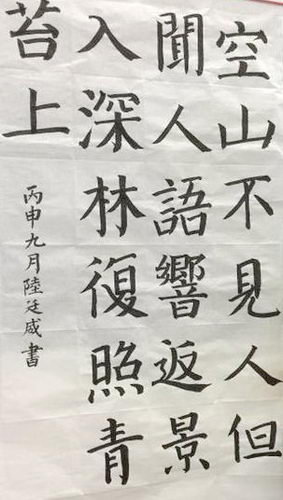 空山不見人但
聞人語響返景
入深林復照青
苔上
丙申九月陸廷威書